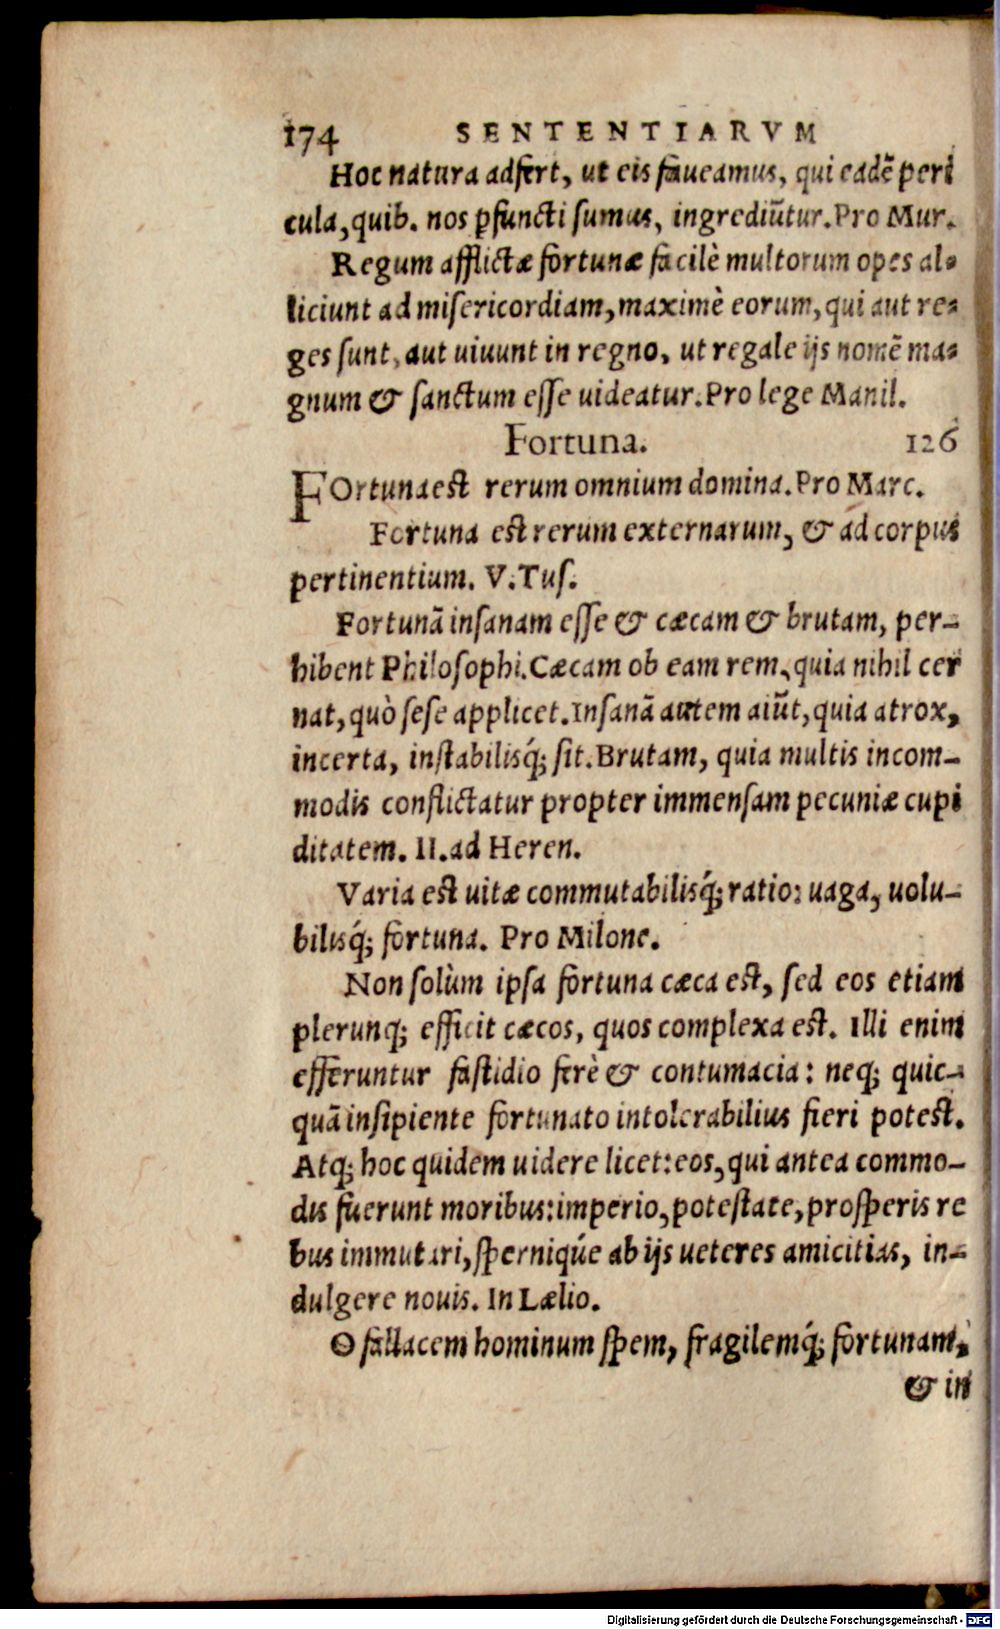 174 SENTENTIARVM
Hoc natura adfert, ut eis faueamus, qui eadē peri
cula, quib. nos ꝑfuncti sumus, ingrediūtur. Pro Mur.
Regum afflictæ fortunæ facilè multorum opes al-
liciunt ad misericordiam, maximè eorum, qui aut re-
ges sunt, aut uiuunt in regno, ut regale ijs nomē ma-
gnum & sanctum esse uideatur. Pro lege Manil.
Fortuna. 126
FOrtuna est rerum omnium domina. Pro Marc.
Fortuna est rerum externarum, & ad corpus
pertinentium. V. Tus.
Fortunā insanam esse & cæcam & brutam, per-
hibent Philosophi. Cæcam ob eam rem, quia nihil cer
nat, quò sese applicet. Insanā autem aiūt, quia atrox,
incerta, instabilisq́; sit. Brutam, quia multis incom-
modis conflictatur propter immensam pecuniæ cupi
ditatem. II. ad Heren.
Varia est uitæ commutabilisq́; ratio: uaga, uolu-
bilisq́; fortuna. Pro Milone.
Non solùm ipsa fortuna cæca est, sed eos etiam
plerunq; efficit cæcos, quos complexa est. Illi enim
efferuntur fastidio ferè & contumacia: neq; quic-
quā insipiente fortunato intolerabilius fieri potest.
Atq; hoc quidem uidere licet: eos, qui antea commo-
dis fuerunt moribus: imperio, potestate, prosperis re
bus immutari, sperniqúe ab ijs ueteres amicitias, in-
dulgere nouis. In Lælio.
O fallacem hominum spem, fragilemq́; fortunam,
& in
Digitalisierung gefördert durch die Deutsche Forschungsgemeinschaft - DFG